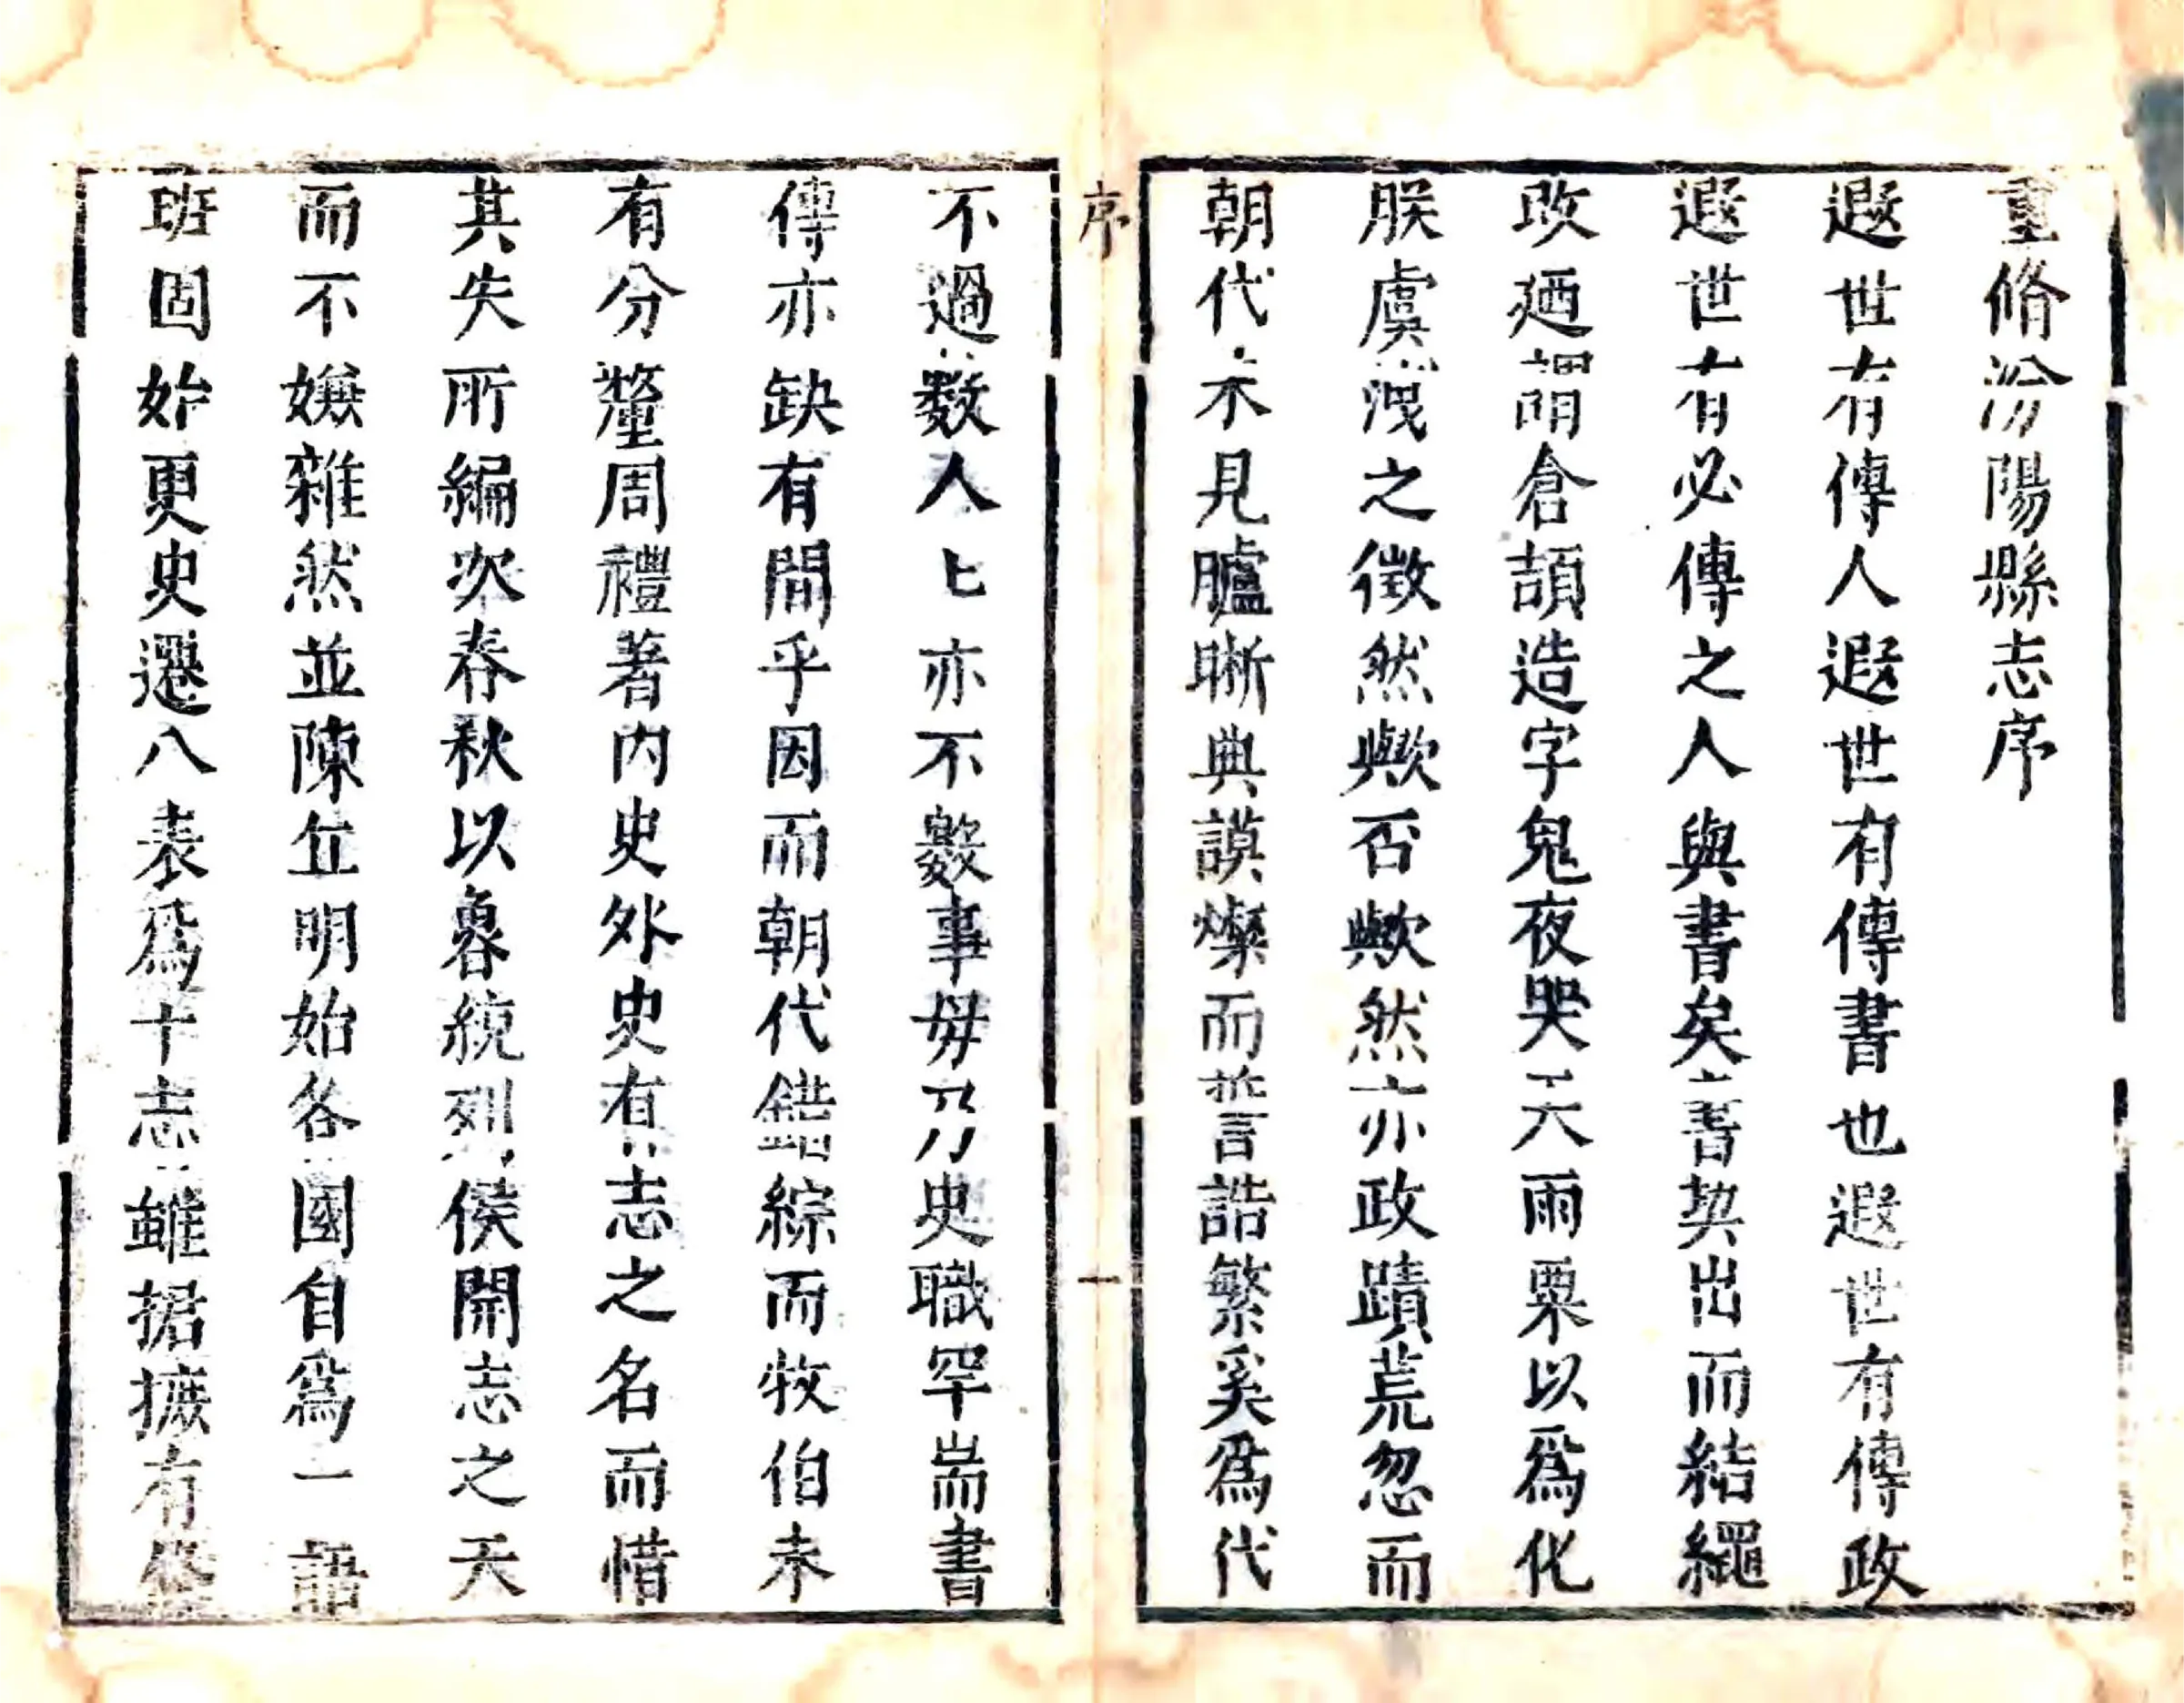 重脩汾陽縣志序
遐世有傳人遐世有傳書也遐世有傳政
遐世有必傳之人與書矣書契出而結繩
改廼謂倉頡造字鬼夜哭天雨粟以爲化
朕虞洩之徵然歟否歟然亦政蹟荒忽而
朝代未見臚晰典謨燦而誓誥繁奚爲代
序
一
不過數人匕亦不數事毋乃史職罕耑書
傳亦缺有間乎因而朝代錯綜而牧伯未
有分釐周禮著内史外史有志之名而惜
其失所編次春秋以魯統列侯開志之天
而不嫌雜然並陳丘明始各國自爲一語
班固始更史遷八表爲十志雖捃摭有